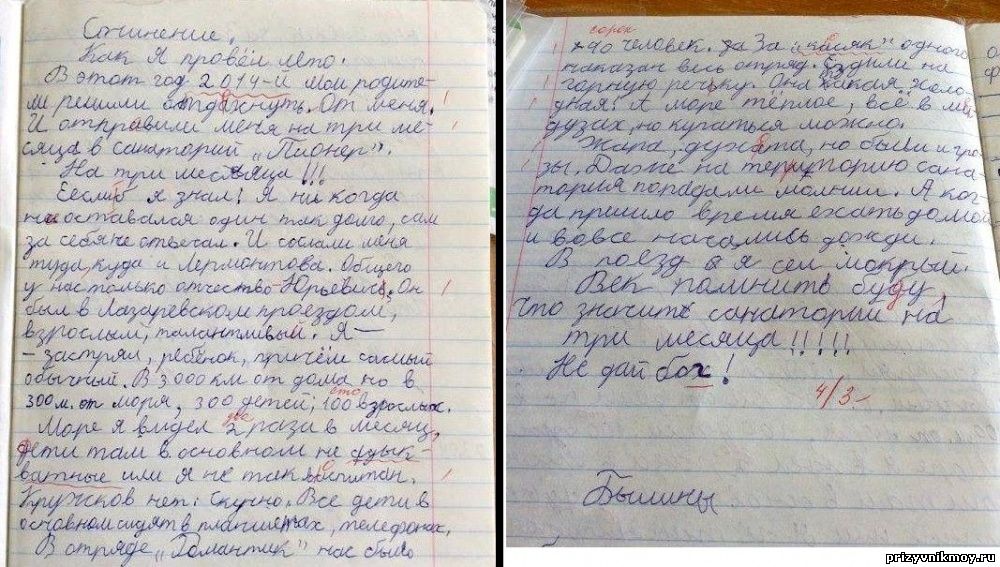 Сочинение.
Как я провёл лето.
В этот год 2014-й мои родите-
ли решили отдыхнуть. От меня.
И отправили меня на три ме-
сяца в санаторий „Пионер".
На три месяца!!!
Если б я знал! Я ни когда
не оставался один так долго, сам
за себя не отвечал. И сослали меня
туда, куда и Лермонтова. Общего
у нас только отчество-Юрьевич. Он
был в Лазаревском проездом,
взрослый, талантливый. Я —
- застрял, ребёнок, причём самый
обычный. В 3000 км от дома но в
300 м. от моря, 300 детей, 100 взрослых.
сто
Море я видел 2 раза в месяц,
два
дети там в основном не адык-
ватные или я не так воспитан.
Кружков нет. Скучно. Все дети в
основном сидят в планшетах, телефонах.
В отряде „Романтик" нас было
сорок
40 человек. За „касяк" одного
наказан весь отряд. Ездили на
горную речьку. Она такая холо-
дная! А море тёплое, всё в ме
дузах, но купаться можно.
Жара, духата, но были и гро-
зы. Даже на территорию сана-
тория попадали молнии. А ког-
да пришло время ехать домой
и вовсе начались дожди.
В поезд я сел мокрый.
Век помнить буду,
что значить санаторий на
три месяца!!!!!
Не дай бог!
4/3-
Былины
prizyvnikmoy.ru